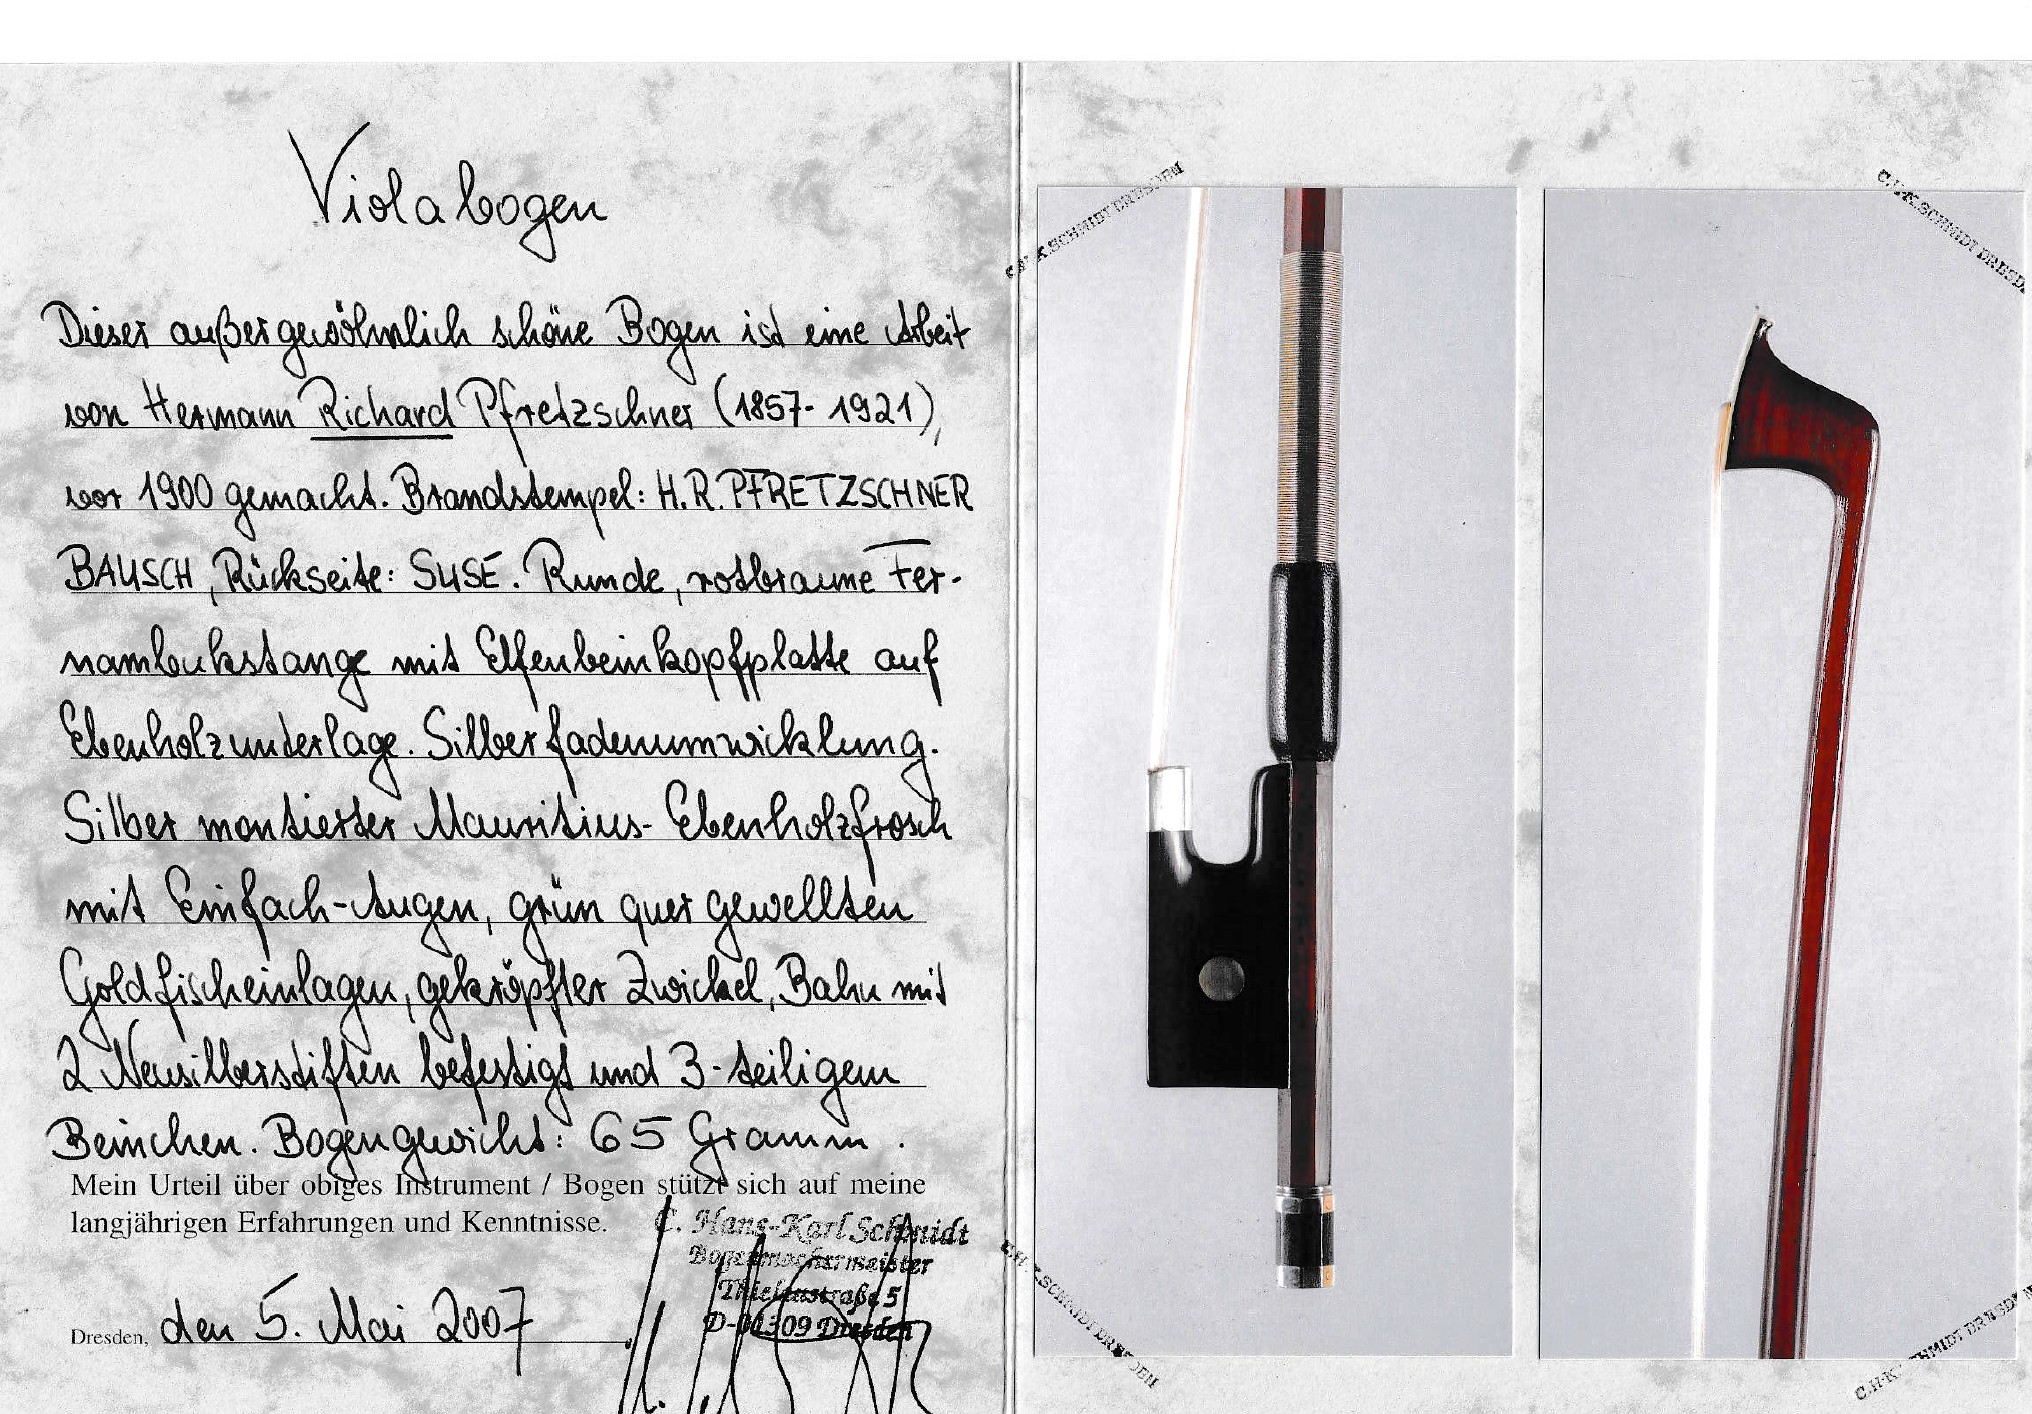 Violabogen
Dieser außergewöhnlich schöne Bogen ist eine Arbeit
von Hermann Richard Pfretzschner (1857-1921),
vor 1900 gemacht. Brandstempel: H.R.PFRETZSCHNER
BAUSCH, Rückseite: SUSE. Runde, rotbraune Fer-
nambukstange mit Elfenbeinkopfplatte auf
Ebenholzunterlage. Silberfadenumwicklung.
Silber montierter Mauritius-Ebenholzfrosch
mit Einfach-Augen, grün quer gewellten
Goldfischeinlagen, gekröpfter Zwickel, Bahn mit
2 Neusilberstiften befestigt und 3-teiligem
Beinchen. Bogengewicht: 65 Gramm.
Mein Urteil über obiges Instrument / Bogen stützt sich auf meine
langjährigen Erfahrungen und Kenntnisse.
C. Hans-Karl Schmidt
Bogenmachermeister
Thielaustraße 5
D-01309 Dresden
Dresden, den 5. Mai 2007
C.H-K.SCHMIDT DRESDEN
C.H-K.SCHMIDT DRESDEN
C.H-K.SCHMIDT DRESDEN
C.H-K.SCHMIDT DRESDEN